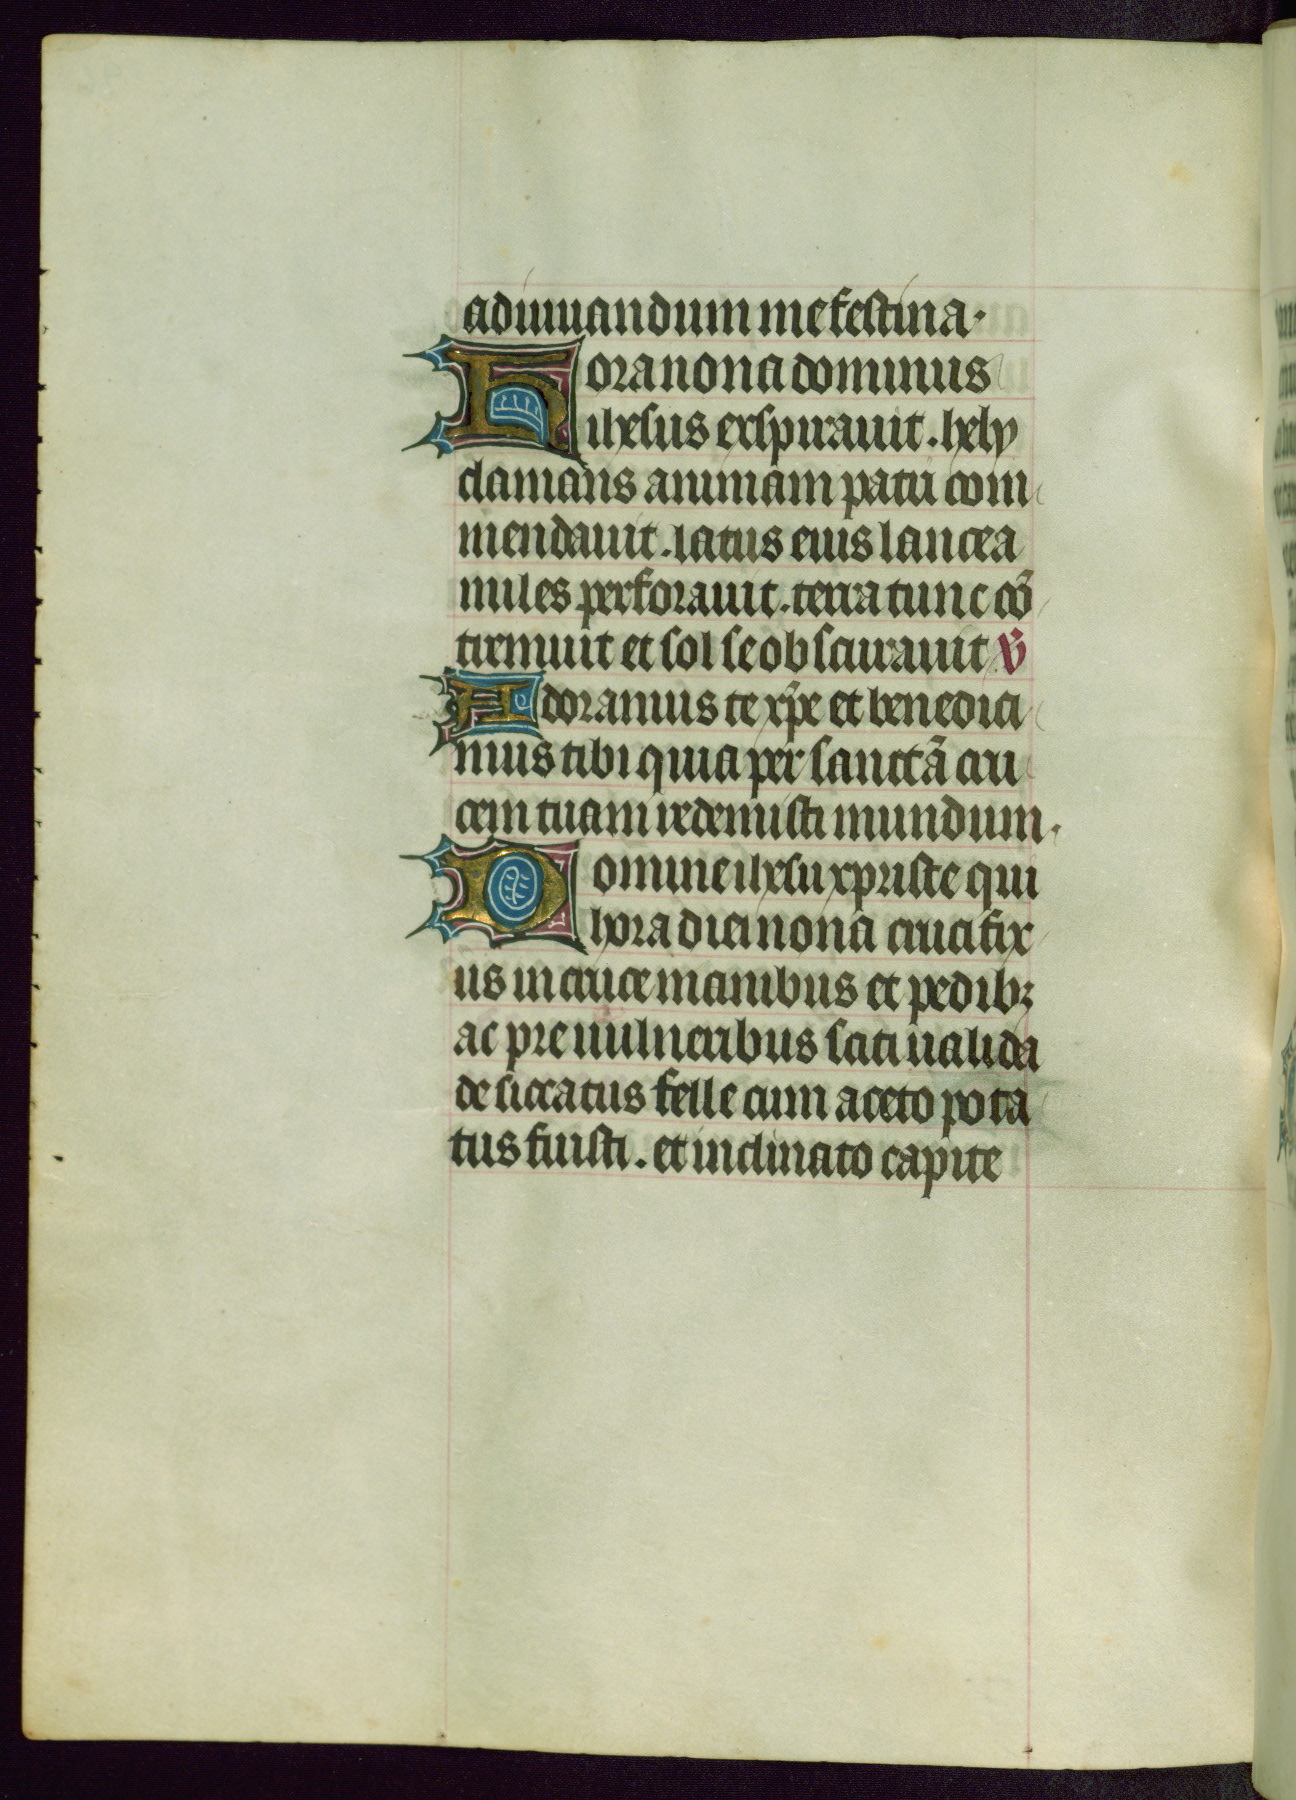 adiuuandum me festina.
Hora nona dominus
ihesus exspirauit. hely
clamans animam patri com
mendauit. latus eius lancea
miles perforauit. terra tunc co̅
tremuit et sol se obscurauit ℣
Adoramus te xp̅e et benedici
mus tibi quia per sanctā cru
cem tuam redemisti mundum.
Domine ihesu xpriste qui
hora diei nona crucifix
us in cruce manibus et pedibꝫ
ac pre uulneribus siti ualida
desiccatus felle cum aceto pota
tus fuisti. et inclinato capite